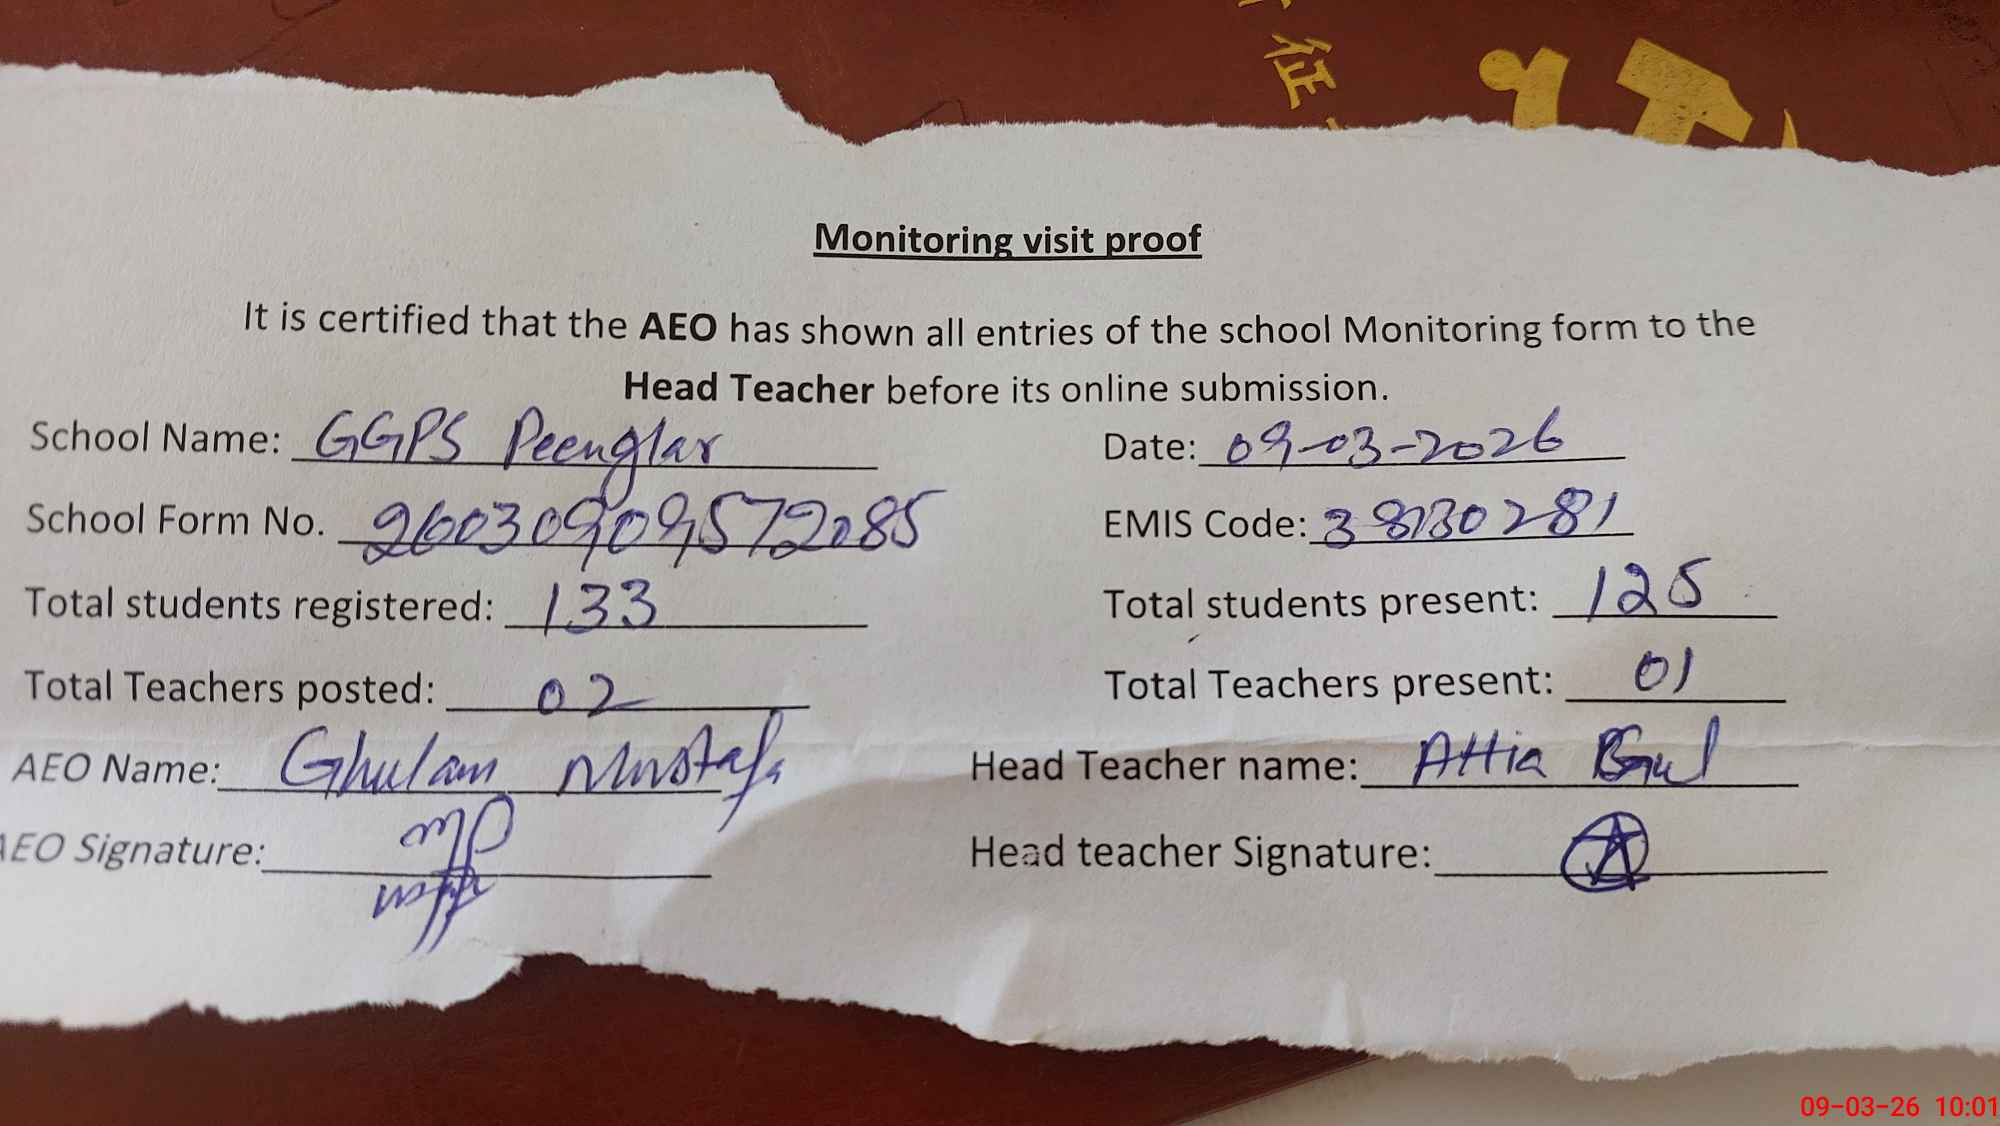 征
Monitoring visit proof
It is certified that the AEO has shown all entries of the school Monitoring form to the
Head Teacher before its online submission.
School Name: GGPS Peenglar Date: 09-03-2026
School Form No. 26030909572085 EMIS Code: 38130281
Total students registered: 133 Total students present: 125
Total Teachers posted: 02 Total Teachers present: 01
AEO Name: Ghulam Mustafa Head Teacher name: Attia Gul
AEO Signature: Head teacher Signature:
09-03-26 10:01